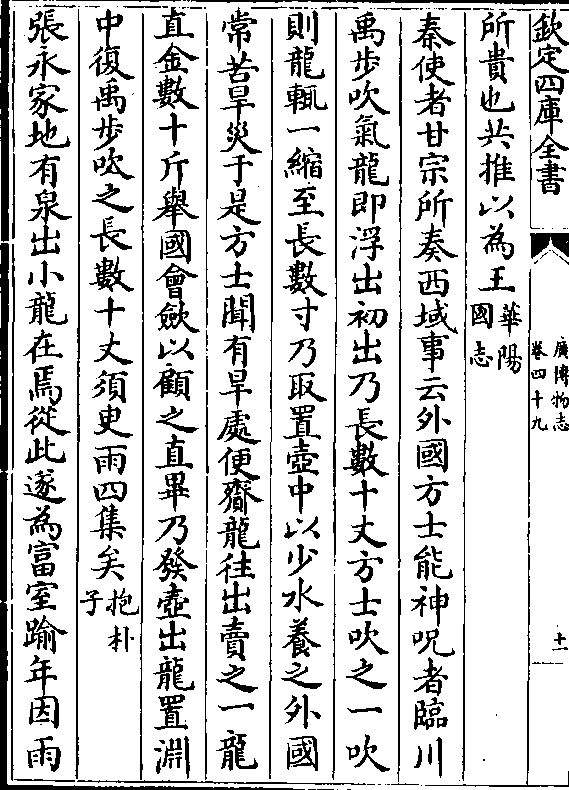 欽定四庫全書
廣博物志
卷四十九
十一
所貴也共推以為王華陽
國志
秦使者甘宗所奏西域事云外國方士能神呪者臨川
禹步吹氣龍即浮出初出乃長數十丈方士吹之一吹
則龍輒一縮至長數寸乃取置壺中以少水養之外國
常苦旱災于是方士聞有旱處便齎龍往出賣之一龍
直金數十斤舉國會斂以顧之直畢乃發壺出龍置淵
中復禹步吹之長數十丈須臾雨四集矣抱朴
子
張永家地有泉出小龍在焉從此遂為富室踰年因雨